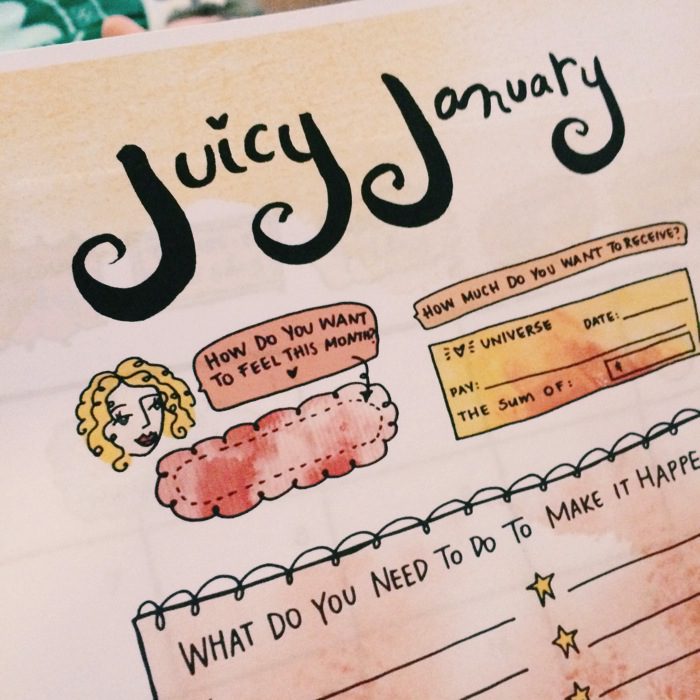 Juicy January
HOW DO YOU WANT
TO FEEL THIS MONTH?
HOW MUCH DO YOU WANT TO RECEIVE?
UNIVERSE
DATE:
PAY:
THE SUM OF:
WHAT DO YOU NEED TO DO TO MAKE IT HAPPE